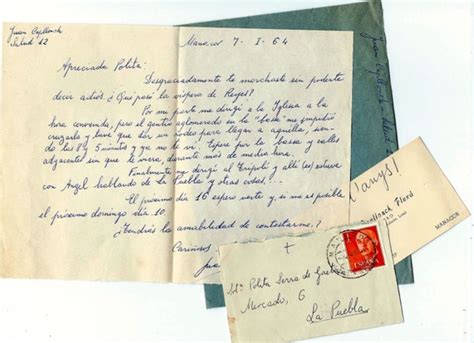 Juan
Salud 42
Manacor 7-I-64
Apreciada Polita:
Desgraciadamente te marchaste sin poderte
decir adiós. ¿Qué pasó la víspera de Reyes?
Por mi parte me dirigí a la Iglesia a la
hora convenida, pero el gentío aglomerado en la "bassa" me impidió
cruzarla y tuve que dar un rodeo para llegar a aquella, sien-
do las 8 y 5 minutos y ya no te vi. Esperé por la bassa y calles
adyacentes sin que te viera, durante más de media hora.
Finalmente me dirigí al Trípoli y allí estuve
con Angel hablando de La Puebla y otras cosas...
El próximo día 16 espero verte y, si no es posible
el próximo domingo día 10.
¿Tendrás la amabilidad de contestarme?
Cariños
Juan
MANACOR
ESPAÑA
Polita Serra de
Mercado, 6
La Puebla